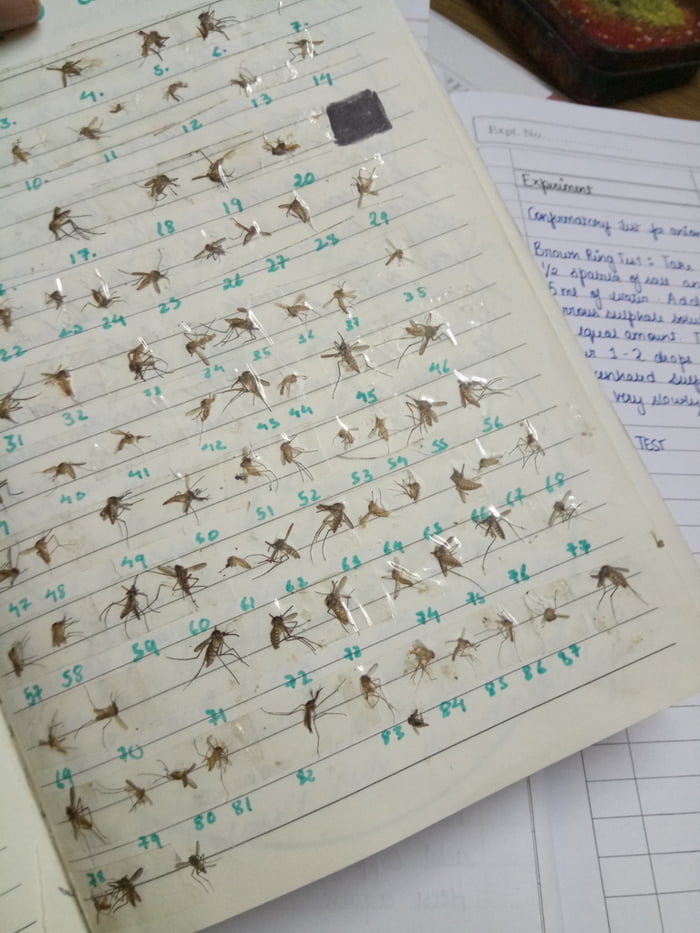 3. 4. 5. 6. 7.
10. 11 12 13 14
17. 18 19 20
22 23 24 25 26 27 28 29
31 32 33 34 35 36 37 38
40 41 42 43 44 45 46
47 48 49 50 51 52 53 54 55 56
57 58 59 60 61 62 63 64 65 66 67 68
69 70 71 72 73 74 75 76 77
78 79 80 81 82 83 84 85 86 87
Expt. No.
Experiment
Confirmatory test for anion
Brown Ring Test : Take
1/2 spatula of salt an
5 ml of water. Add
rrous sulphate solu
equal amount. T
1-2 drops
very slowly
TEST